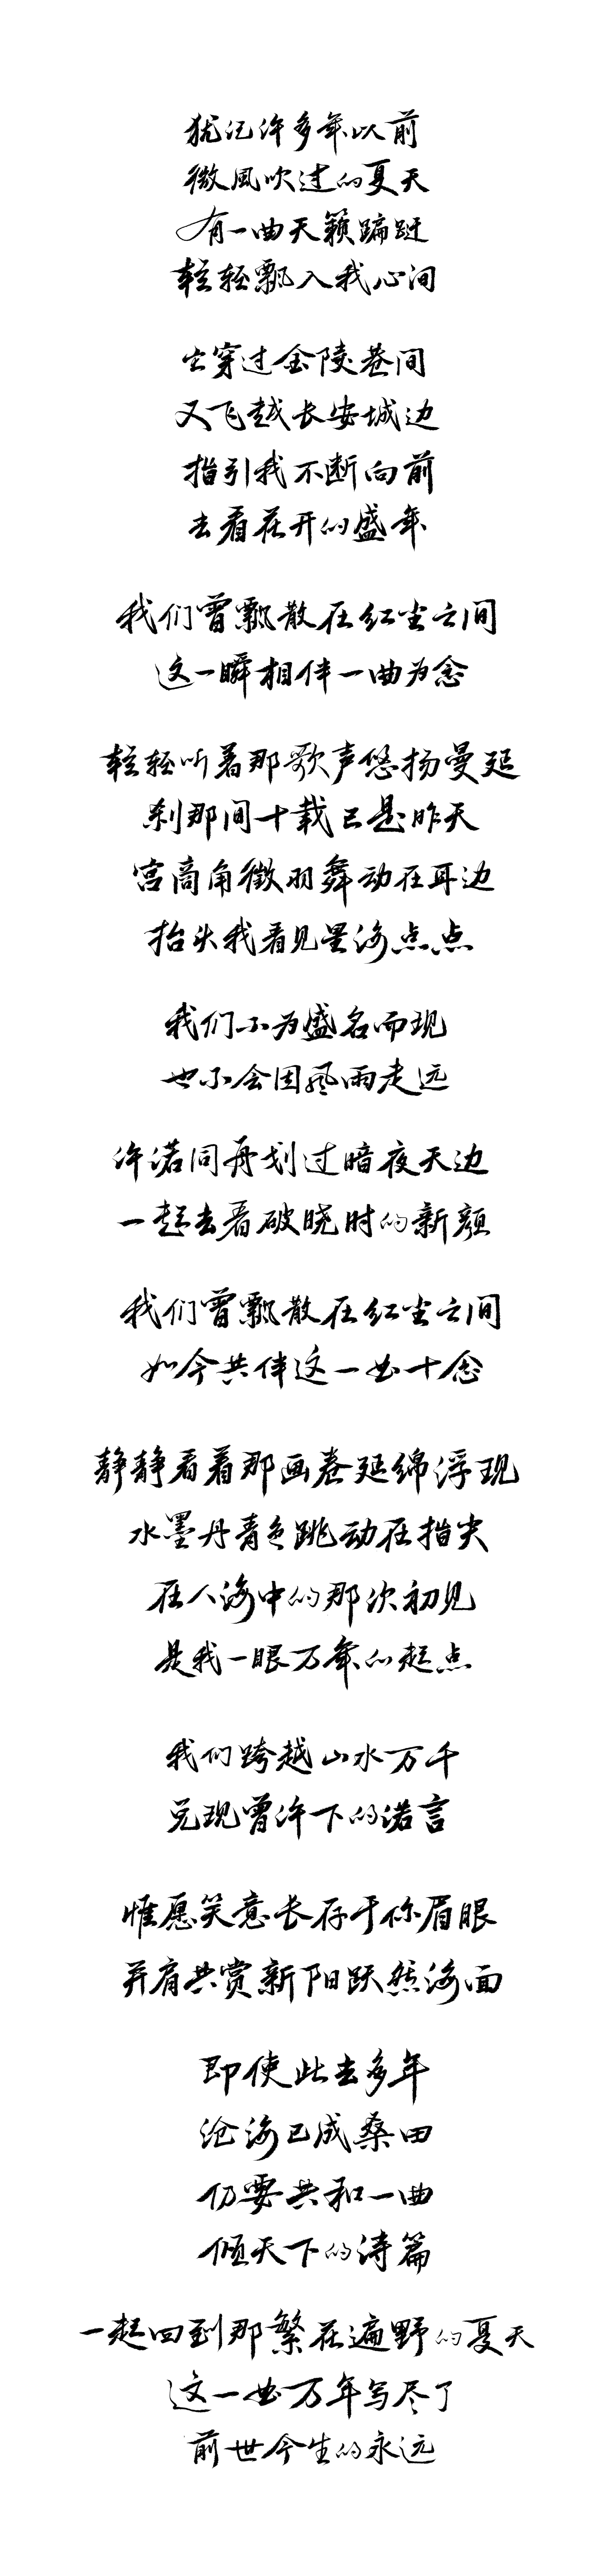 犹记许多年以前
微風吹过的夏天
有一曲天籁蹁跹
轻轻飘入我心间
它穿过金陵巷间
又飞越长安城边
指引我不断向前
去看花开的盛年
我们曾飘散在红尘之间
这一瞬相伴一曲为念
轻轻听着那歌声悠扬曼延
刹那间十载已是昨天
宫商角徵羽舞动在耳边
抬头我看见星海点点
我们不为盛名而现
也不会因风雨走远
许诺同舟划过暗夜天边
一起去看破晓时的新颜
我们曾飘散在红尘之间
如今共伴这一曲十念
静静看着那画卷延绵浮现
水墨丹青色跳动在指尖
在人海中的那次初见
是我一眼万年的起点
我们跨越山水万千
兑现曾许下的诺言
惟愿笑意长存于你眉眼
并肩共赏新阳跃然海面
即使此去多年
沧海已成桑田
仍要共和一曲
倾天下的诗篇
一起回到那繁花遍野的夏天
这一曲万年写尽了
前世今生的永远